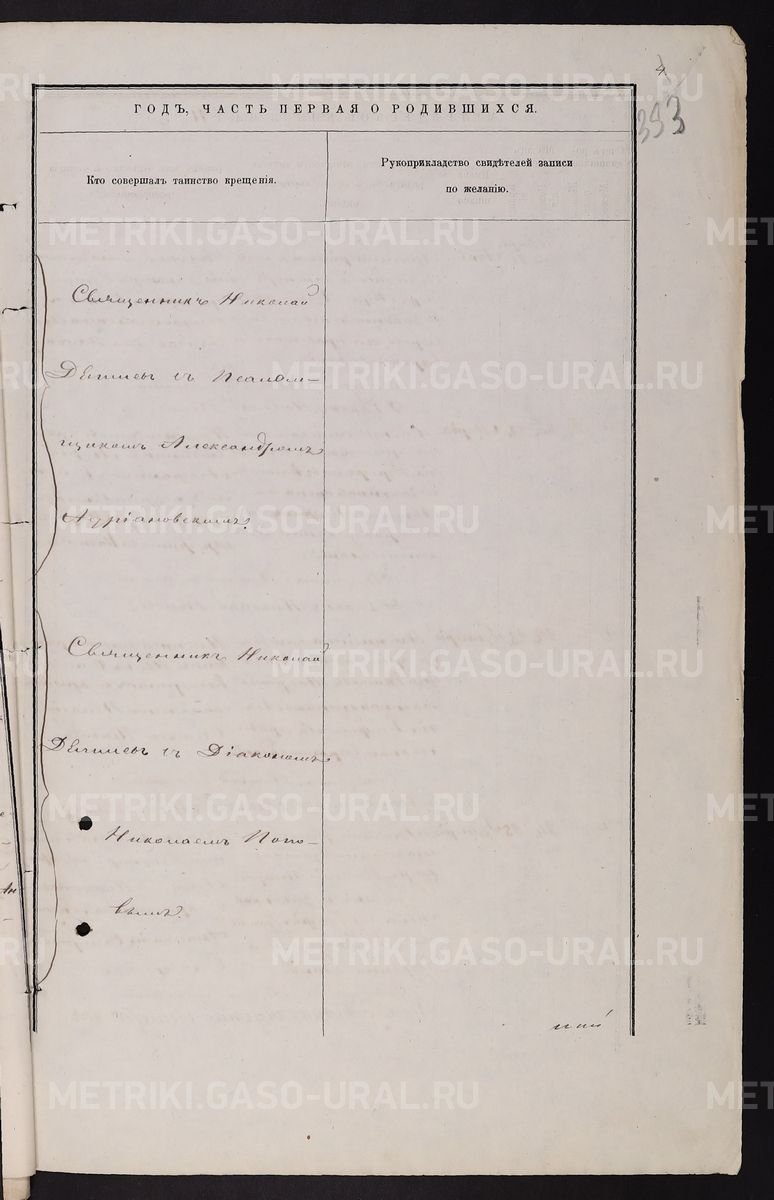 4
393
ГОДЪ, ЧАСТЬ ПЕРВАЯ О РОДИВШИХСЯ.
Кто совершалъ таинство крещенія.
Рукоприкладство свидѣтелей записи
по желанію.
Священникъ Николай
съ Псалом-
щикомъ Александромъ
Адріановскимъ.
Священникъ Николай
съ Діакономъ
Николаемъ Попо-
вымъ.
METRIKI.GASO-URAL.RU